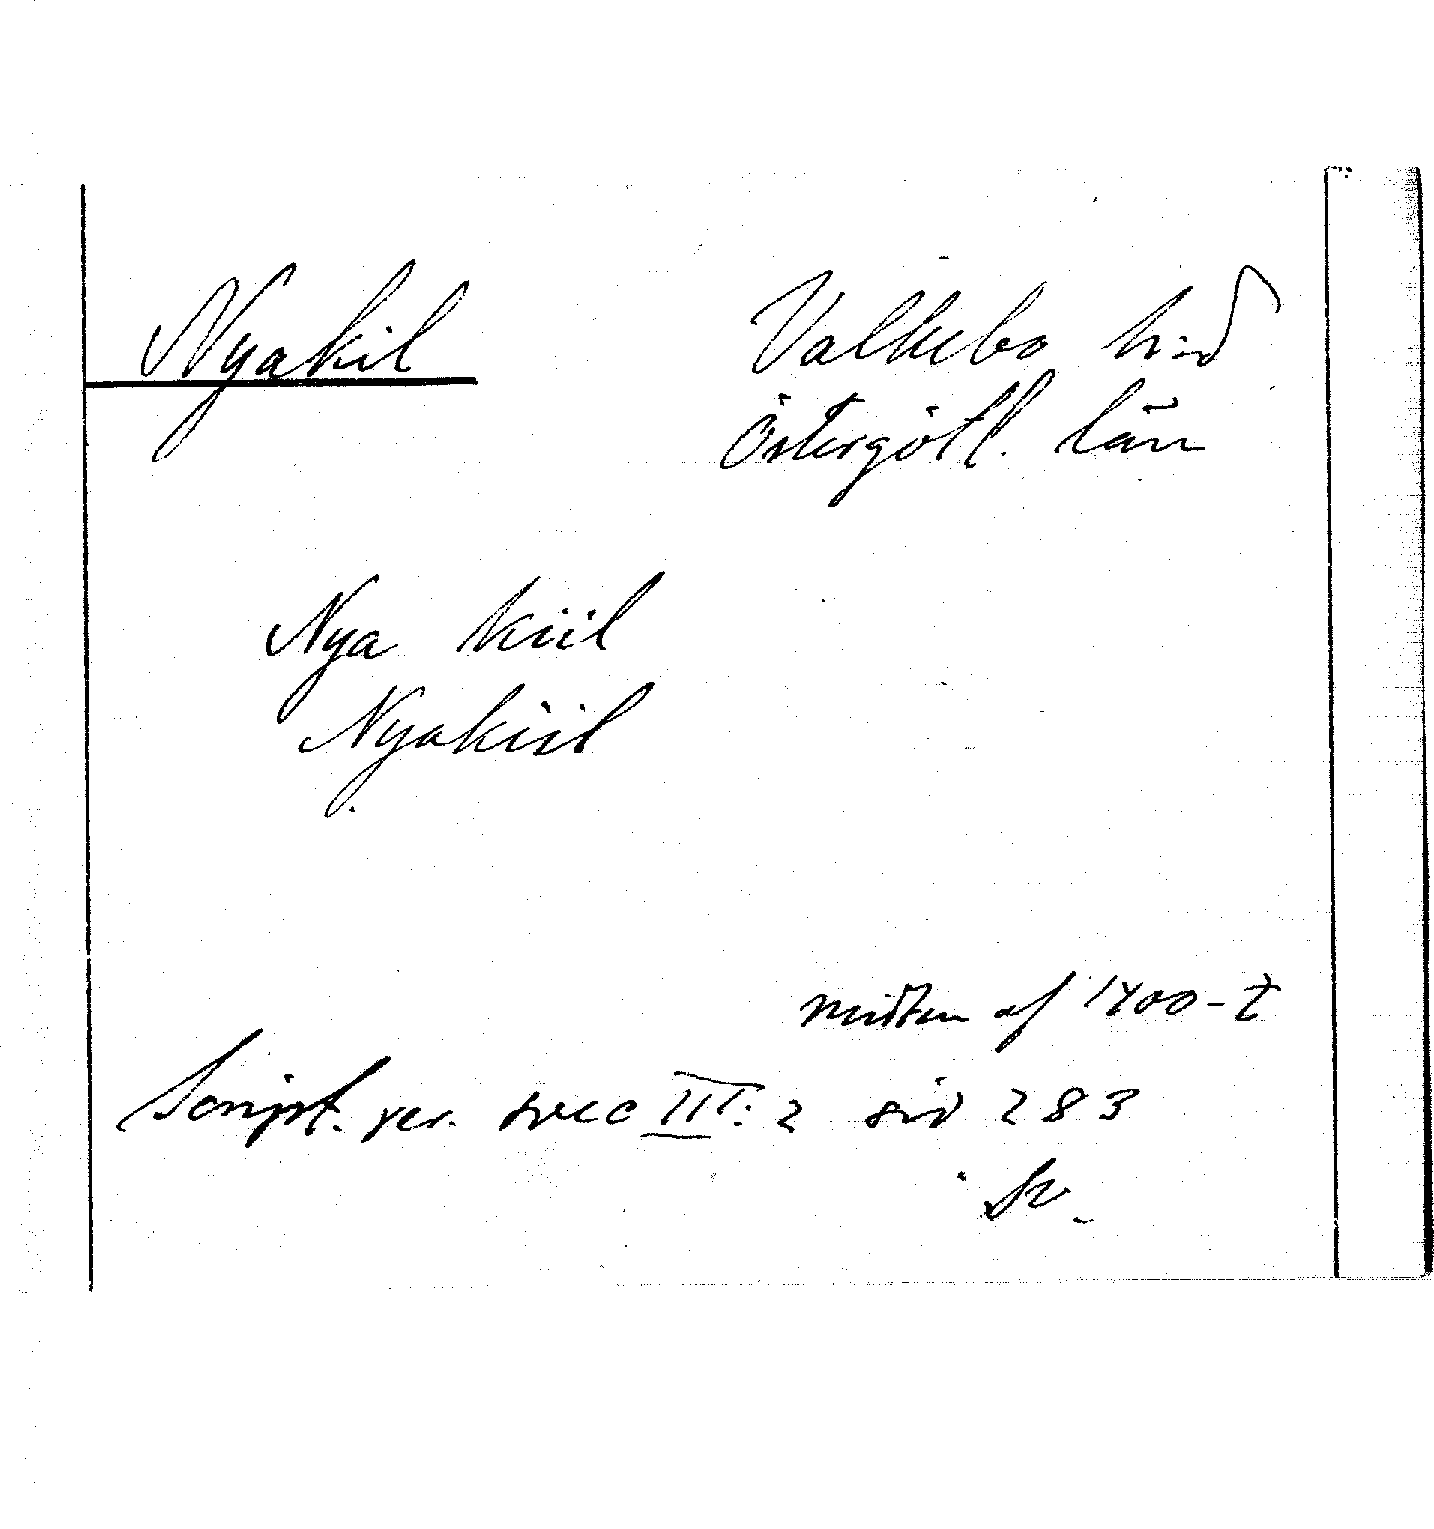 Nyakil
Valkebo h-d
Östergötl. län
Nya kiil
Nyakiil
mitten af 1400-t
Script. rer. svec III: 2 sid 283